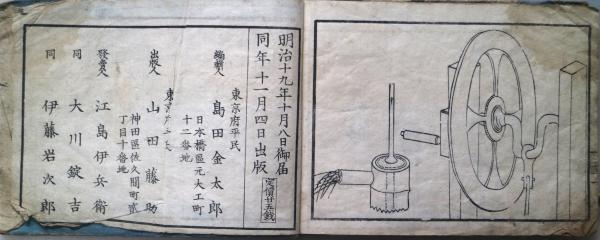 明治十九年十月八日御届
同年十一月四日出版
定價廿五錢
東京府平民
編輯人 島田金太郎
日本橋區元大工町
十二番地
東京
出版人 山田藤助
神田區佐久間町貳
丁目十番地
發賣人 江島伊兵衛
同 大川錠吉
同 伊藤岩次郎